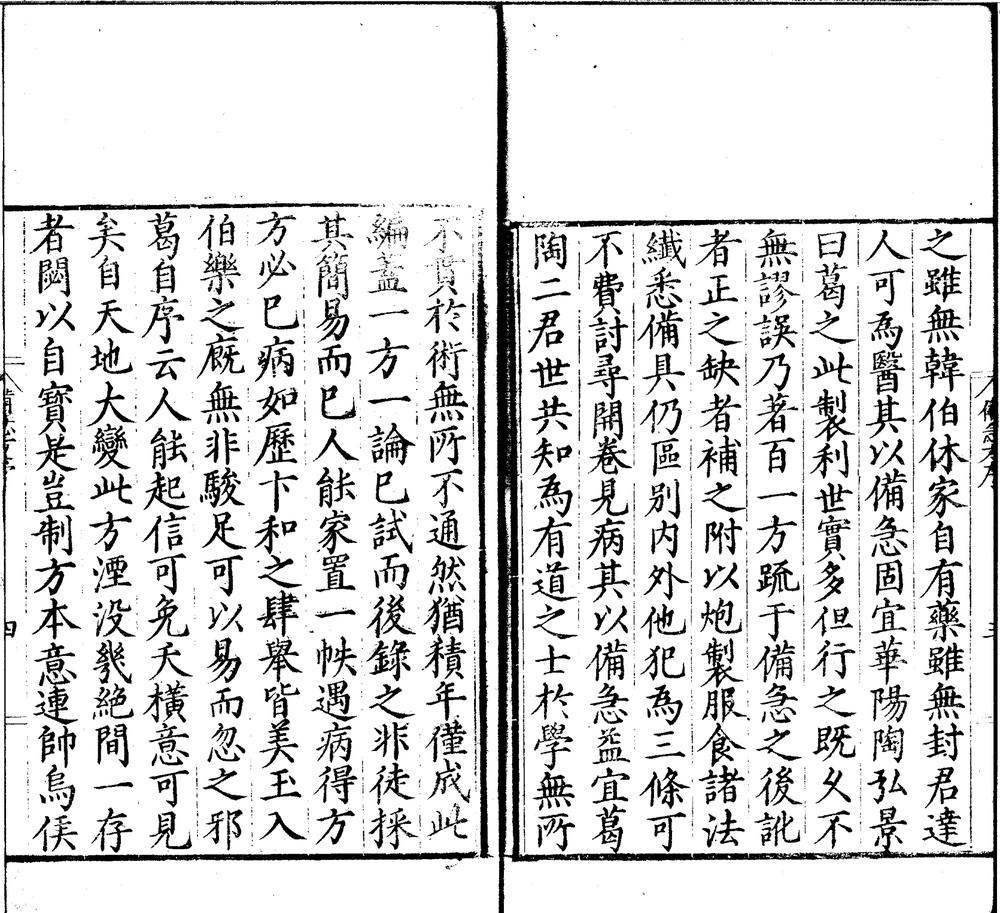 之雖無韓伯休家自有藥雖無封君達
人可為醫其以備急固宜華陽陶弘景
曰葛之此製利世實多但行之既久不
無謬誤乃著百一方疏于備急之後訛
者正之缺者補之附以炮製服食諸法
纖悉備具仍區別內外他犯為三條可
不費討尋開卷見病其以備急益宜葛
陶二君世共知為有道之士於學無所
不貫於術無所不通然猶積年僅成此
編蓋一方一論已試而後錄之非徒採
其簡易而已人能家置一帙遇病得方
方必已病如歷卞和之肆舉皆美玉入
伯樂之廐無非駿足可以易而忽之邪
葛自序云人能起信可免夭橫意可見
矣自天地大變此方湮沒幾絕間一存
者閟以自寶是豈制方本意連帥烏侯
四